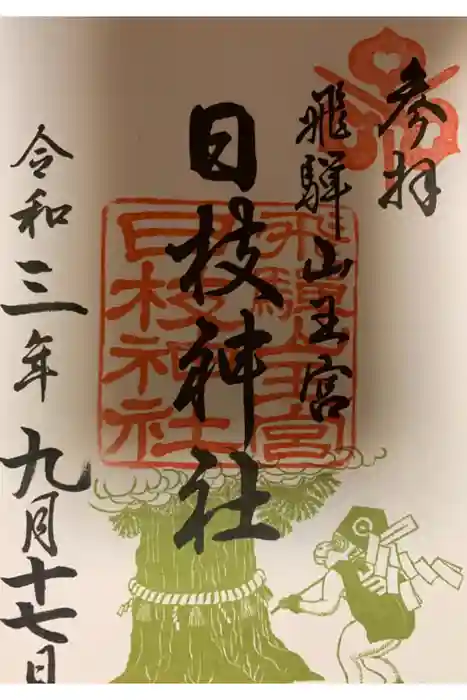 参拝
飛驒山王宮
日枝神社
飛驒山王宮
日枝神社
令和三年九月十七日